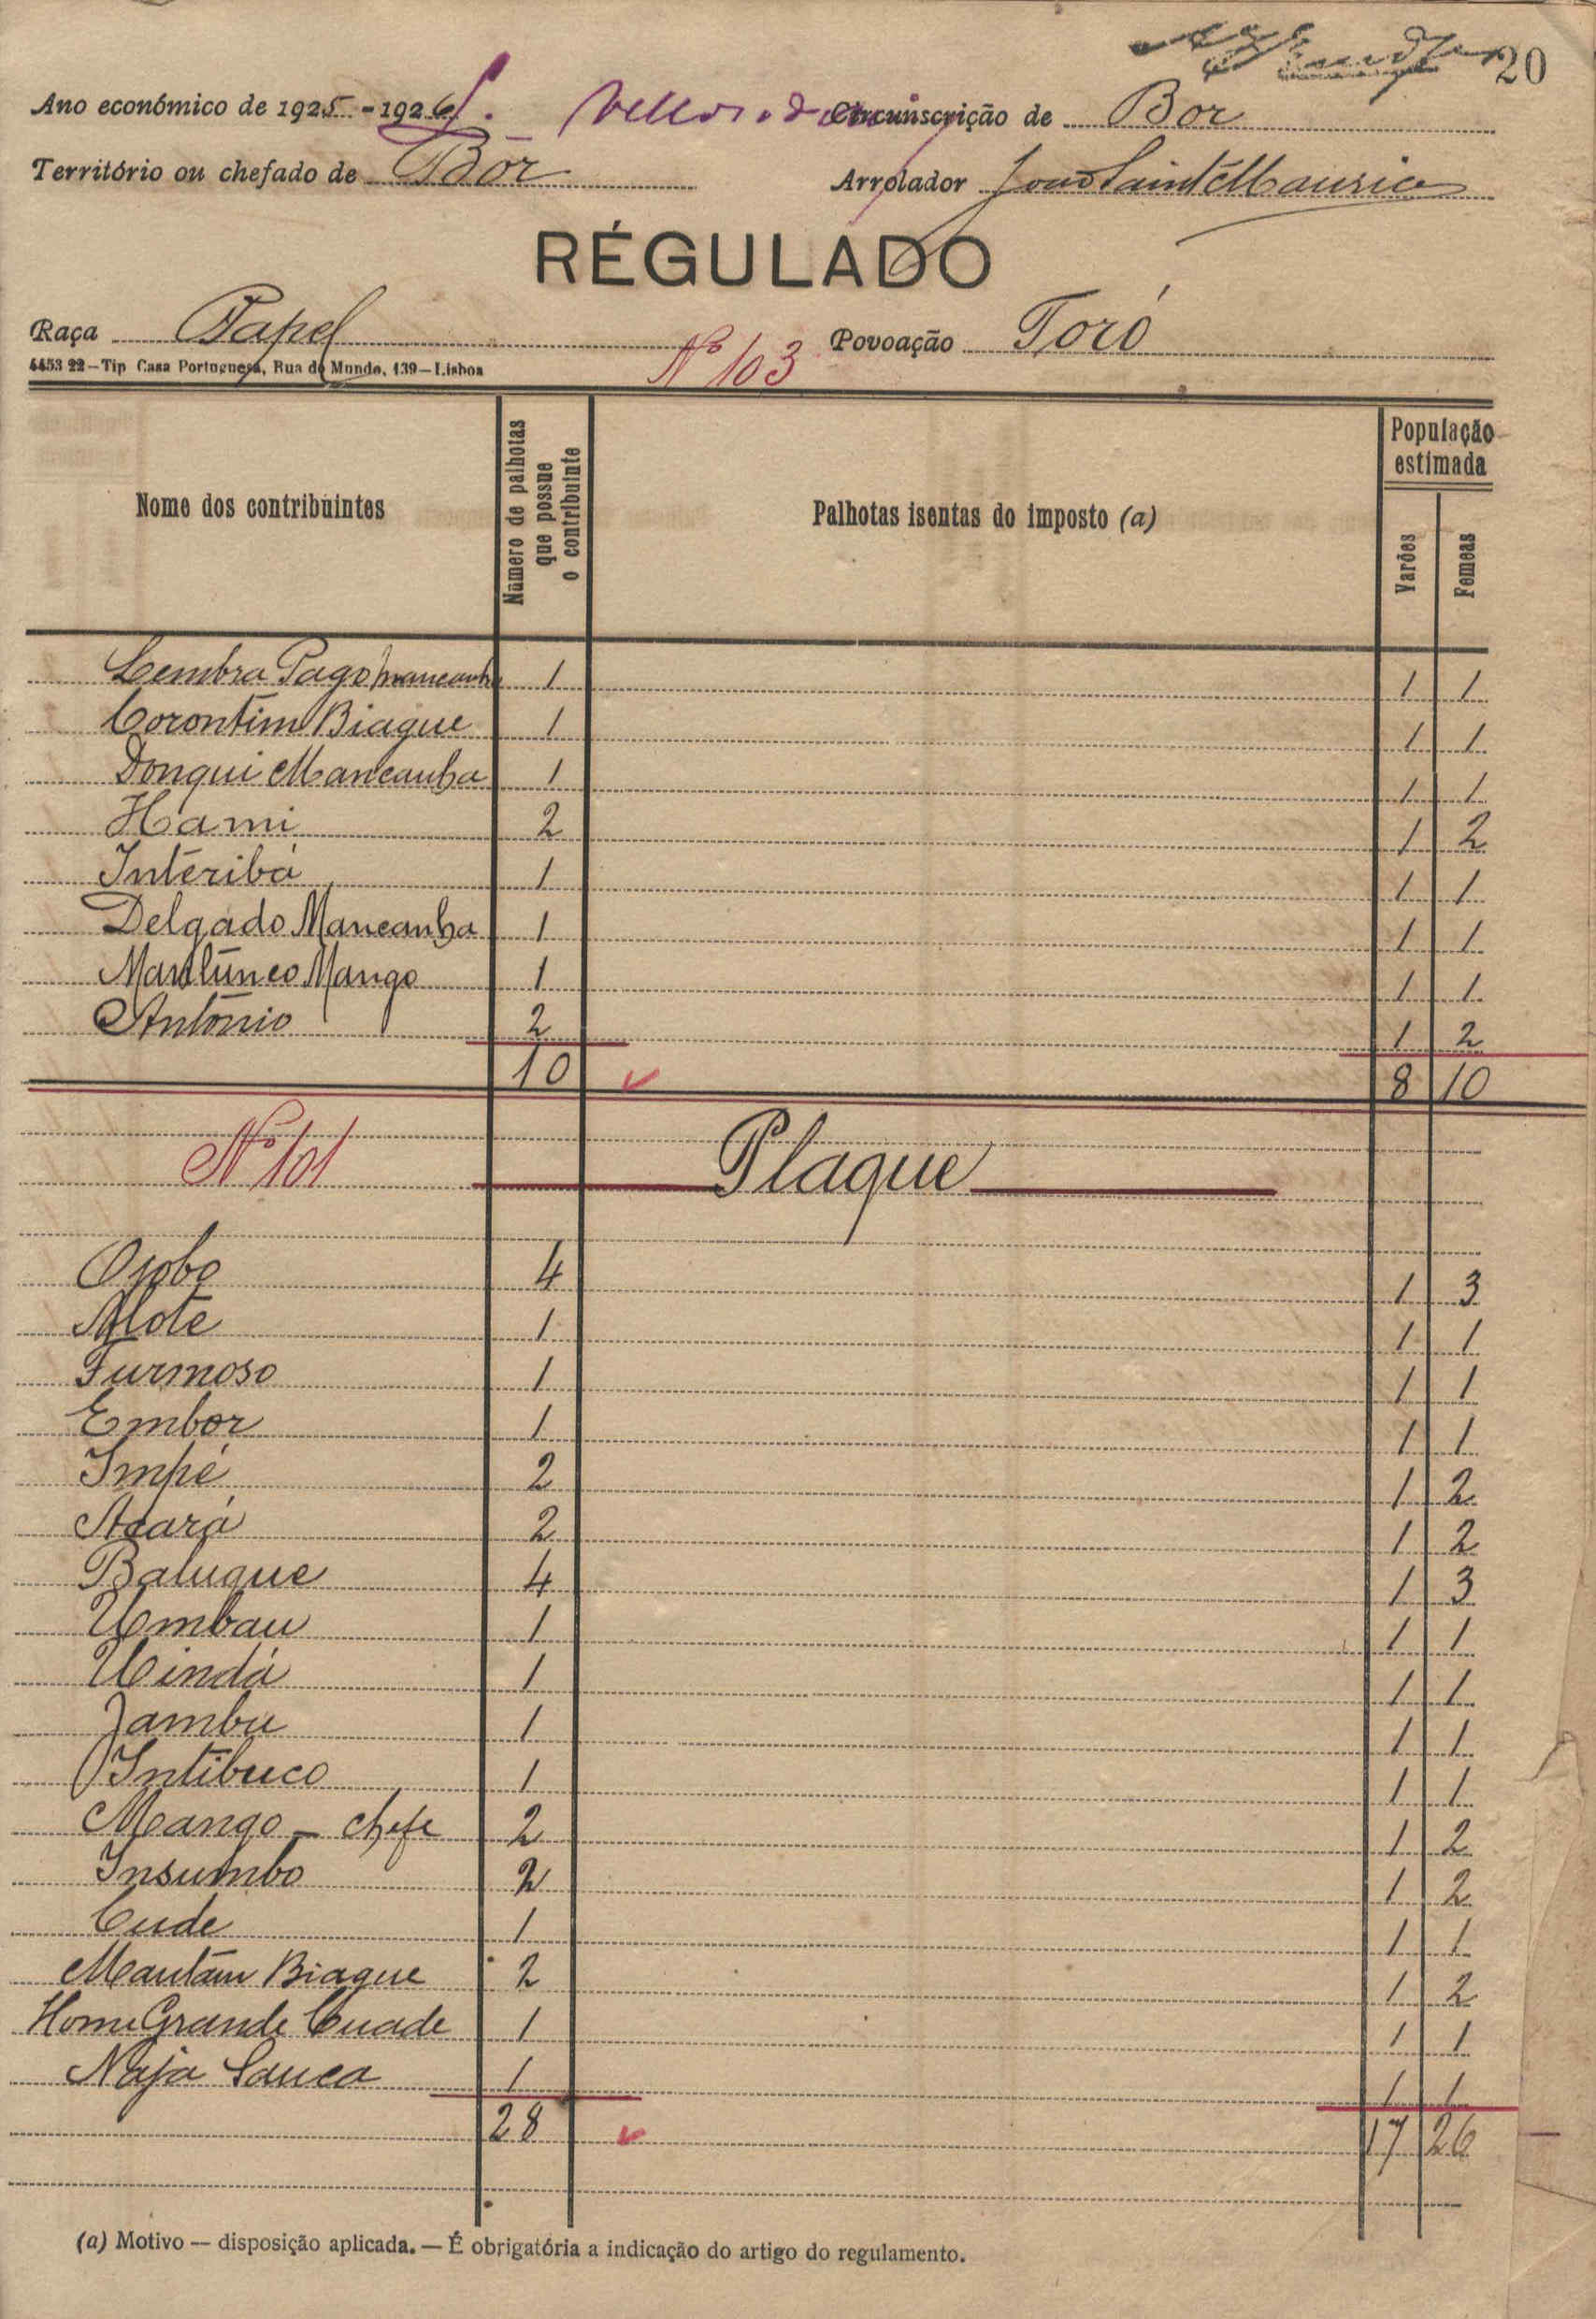 20
Ano económico de 1925-1926 Circunscrição de Bor
Território ou chefado de Bor Arrolador João Saint Maurice
RÉGULADO
Raça Papel Nº 103 Povoação Toró
4453 22—Tip Casa Portuguesa, Rua do Mundo, 139—Lisboa
Nome dos contribuintes Número de palhotas que possue o contribuinte Palhotas isentas do imposto (a) População estimada Varões Femeas
Lembra Pago Mancanha 1 1 1
Corontim Biague 1 1 1
Donqui Mancanha 1 1 1
Hami 2 1 2
Interibá 1 1 1
Delgado Mancanha 1 1 1
Mango 1 1 1
António 2 1 2
10 8 10
Nº 101 Plaque
Ojobo 4 1 3
Alote 1 1 1
Furmoso 1 1 1
Embor 1 1 1
Impé 2 1 2
Acará 2 1 2
Baluque 4 1 3
Umbau 1 1 1
Uindá 1 1 1
Jambu 1 1 1
Intibuco 1 1 1
Mango - chefe 2 1 2
Insumbo 2 1 2
Cude 1 1 1
Mautam Biague 2 1 2
Home Grande Cuade 1 1 1
Naja Sanca 1 1 1
28 17 26
(a) Motivo — disposição aplicada. — É obrigatória a indicação do artigo do regulamento.